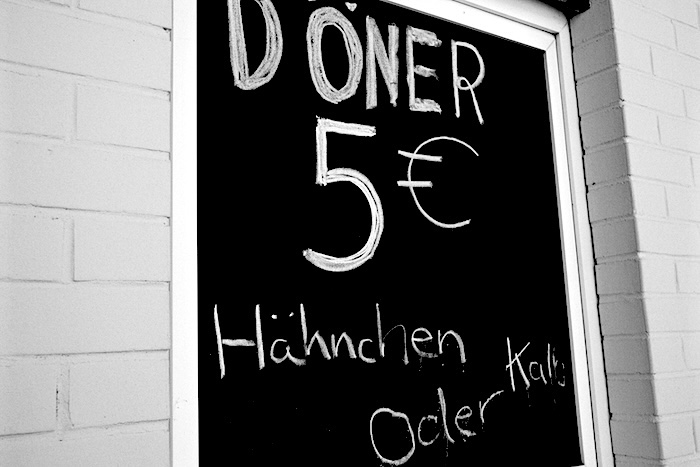 DÖNER
5€
Hähnchen
Oder Kalb